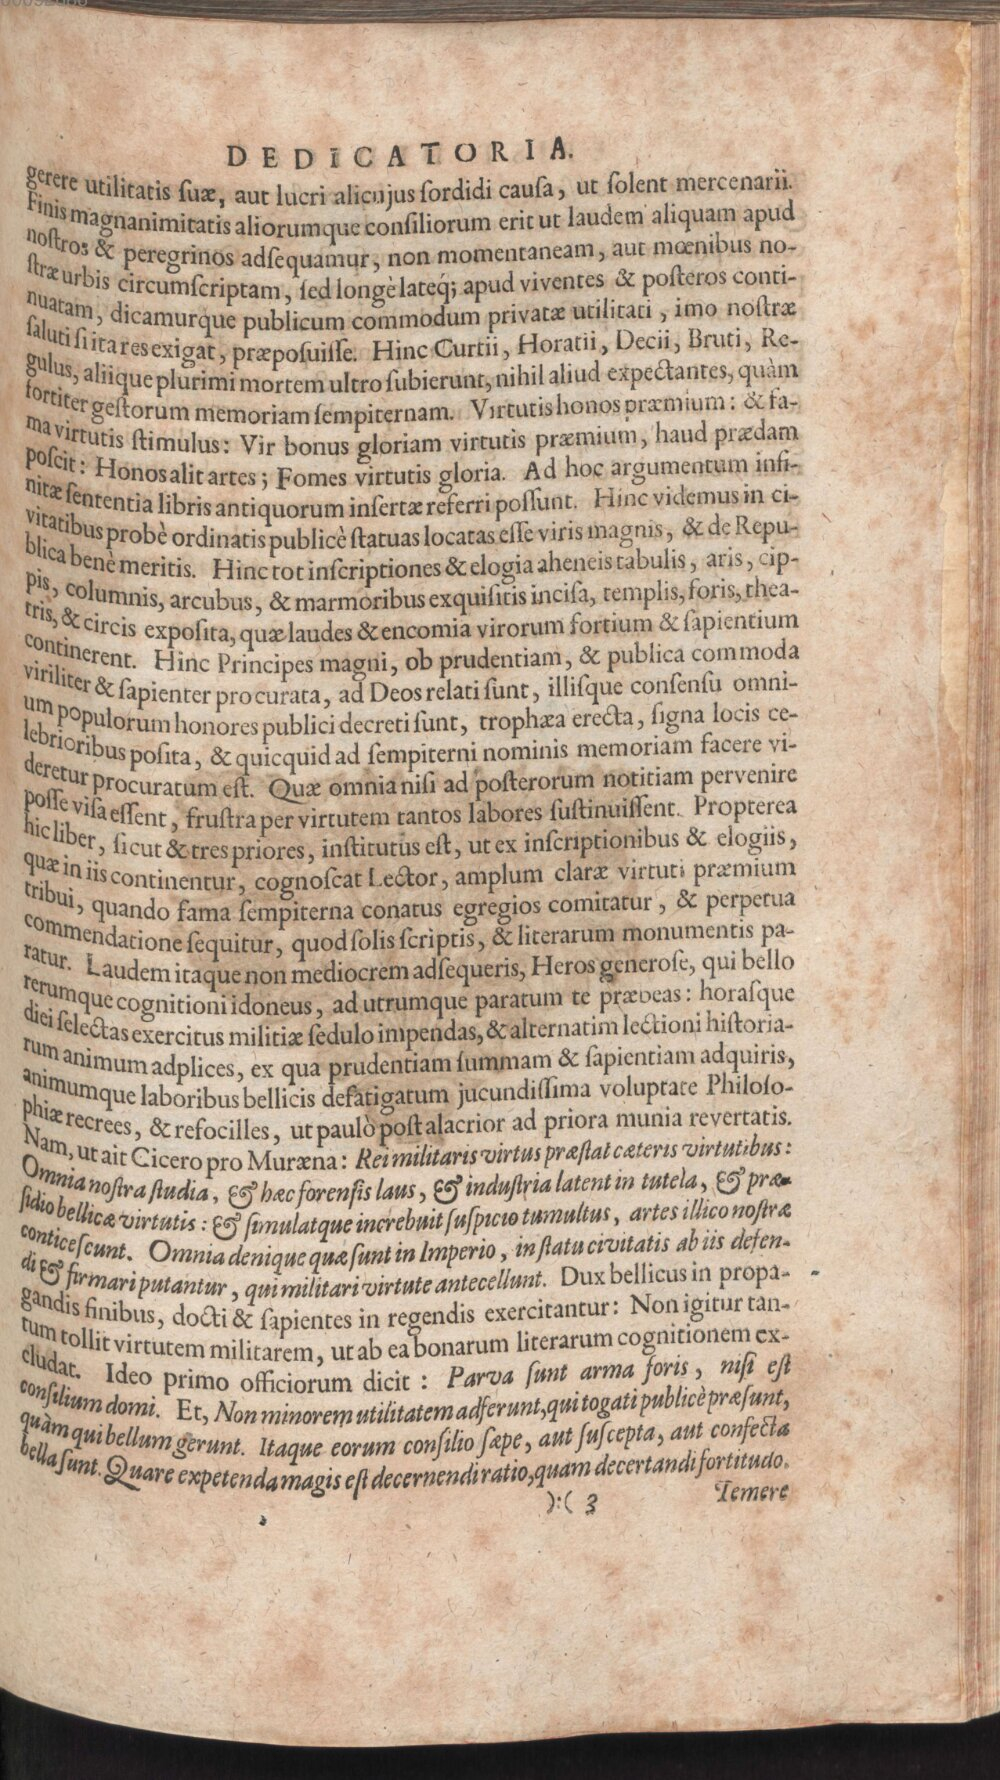 DEDICATORIA.
gerere utilitatis ſuæ, aut lucri alicujus ſordidi cauſa, ut ſolent mercenarii.
Finis magnanimitatis aliorumque conſiliorum erit ut laudem aliquam apud
noſtros & peregrinos adſequamur, non momentaneam, aut mœnibus no-
ſtræ urbis circumſcriptam, ſed longè lateq́; apud viventes & poſteros conti-
nuatam, dicamurque publicum commodum privatæ utilitati, imo noſtræ
ſaluti ſi ita res exigat, præpoſuiſſe. Hinc Curtii, Horatii, Decii, Bruti, Re-
gulus, aliique plurimi mortem ultro ſubierunt, nihil aliud expectantes, quàm
fortiter geſtorum memoriam ſempiternam. Virtutis honos præmium: & fa-
ma virtutis ſtimulus: Vir bonus gloriam virtutis præmium, haud prædam
poſcit: Honos alit artes; Fomes virtutis gloria. Ad hoc argumentum infi-
nitæ ſententia libris antiquorum inſertæ referri poſſunt. Hinc videmus in ci-
vitatibus probè ordinatis publicè ſtatuas locatas eſſe viris magnis, & de Repu-
blica benè meritis. Hinc tot inſcriptiones & elogia aheneis tabulis, aris, cip-
pis, columnis, arcubus, & marmoribus exquiſitis inciſa, templis, foris, thea-
tris, & circis expoſita, quæ laudes & encomia virorum fortium & ſapientium
continerent. Hinc Principes magni, ob prudentiam, & publica commoda
viriliter & ſapienter procurata, ad Deos relati ſunt, illiſque conſenſu omni-
um populorum honores publici decreti ſunt, trophæa erecta, ſigna locis ce-
lebrioribus poſita, & quicquid ad ſempiterni nominis memoriam facere vi-
deretur procuratum eſt. Quæ omnia niſi ad poſterorum notitiam pervenire
poſſe viſa eſſent, fruſtra per virtutem tantos labores ſuſtinuiſſent. Propterea
hic liber, ſicut & tres priores, inſtitutus eſt, ut ex inſcriptionibus & elogiis,
quæ in iis continentur, cognoſcat Lector, amplum claræ virtuti præmium
tribui, quando fama ſempiterna conatus egregios comitatur, & perpetua
commendatione ſequitur, quod ſolis ſcriptis, & literarum monumentis pa-
ratur. Laudem itaque non mediocrem adſequeris, Heros generoſe, qui bello
rerumque cognitioni idoneus, ad utrumque paratum te præbeas: horaſque
diei ſelectas exercitus militiæ ſedulo impendas, & alternatim lectioni hiſtoria-
rum animum adplices, ex qua prudentiam ſummam & ſapientiam adquiris,
animumque laboribus bellicis defatigatum jucundiſſima voluptate Philoſo-
phiæ recrees, & refocilles, ut paulò poſt alacrior ad priora munia revertatis.
Nam, ut ait Cicero pro Muræna: Rei militaris virtus præſtat cæteris virtutibus:
Omnia noſtra ſtudia, & hæc forenſis laus, & induſtria latent in tutela, & præ-
ſidio bellicæ virtutis: & ſimulatque increbuit ſuſpicio tumultus, artes illico noſtræ
conticeſcunt. Omnia denique quæ ſunt in Imperio, in ſtatu civitatis ab iis defen-
di & firmari putantur, qui militari virtute antecellunt. Dux bellicus in propa-
gandis finibus, docti & ſapientes in regendis exercitantur: Non igitur tan-
tum tollit virtutem militarem, ut ab ea bonarum literarum cognitionem ex-
cludat. Ideo primo officiorum dicit: Parva ſunt arma foris, niſi eſt
conſilium domi. Et, Non minorem utilitatem adferunt, qui togati publicè præſunt,
quàm qui bellum gerunt. Itaque eorum conſilio ſæpe, aut ſuſcepta, aut confecta
bella ſunt. Quare expetenda magis eſt decernendi ratio, quam decertandi fortitudo.
):( 3
Temere